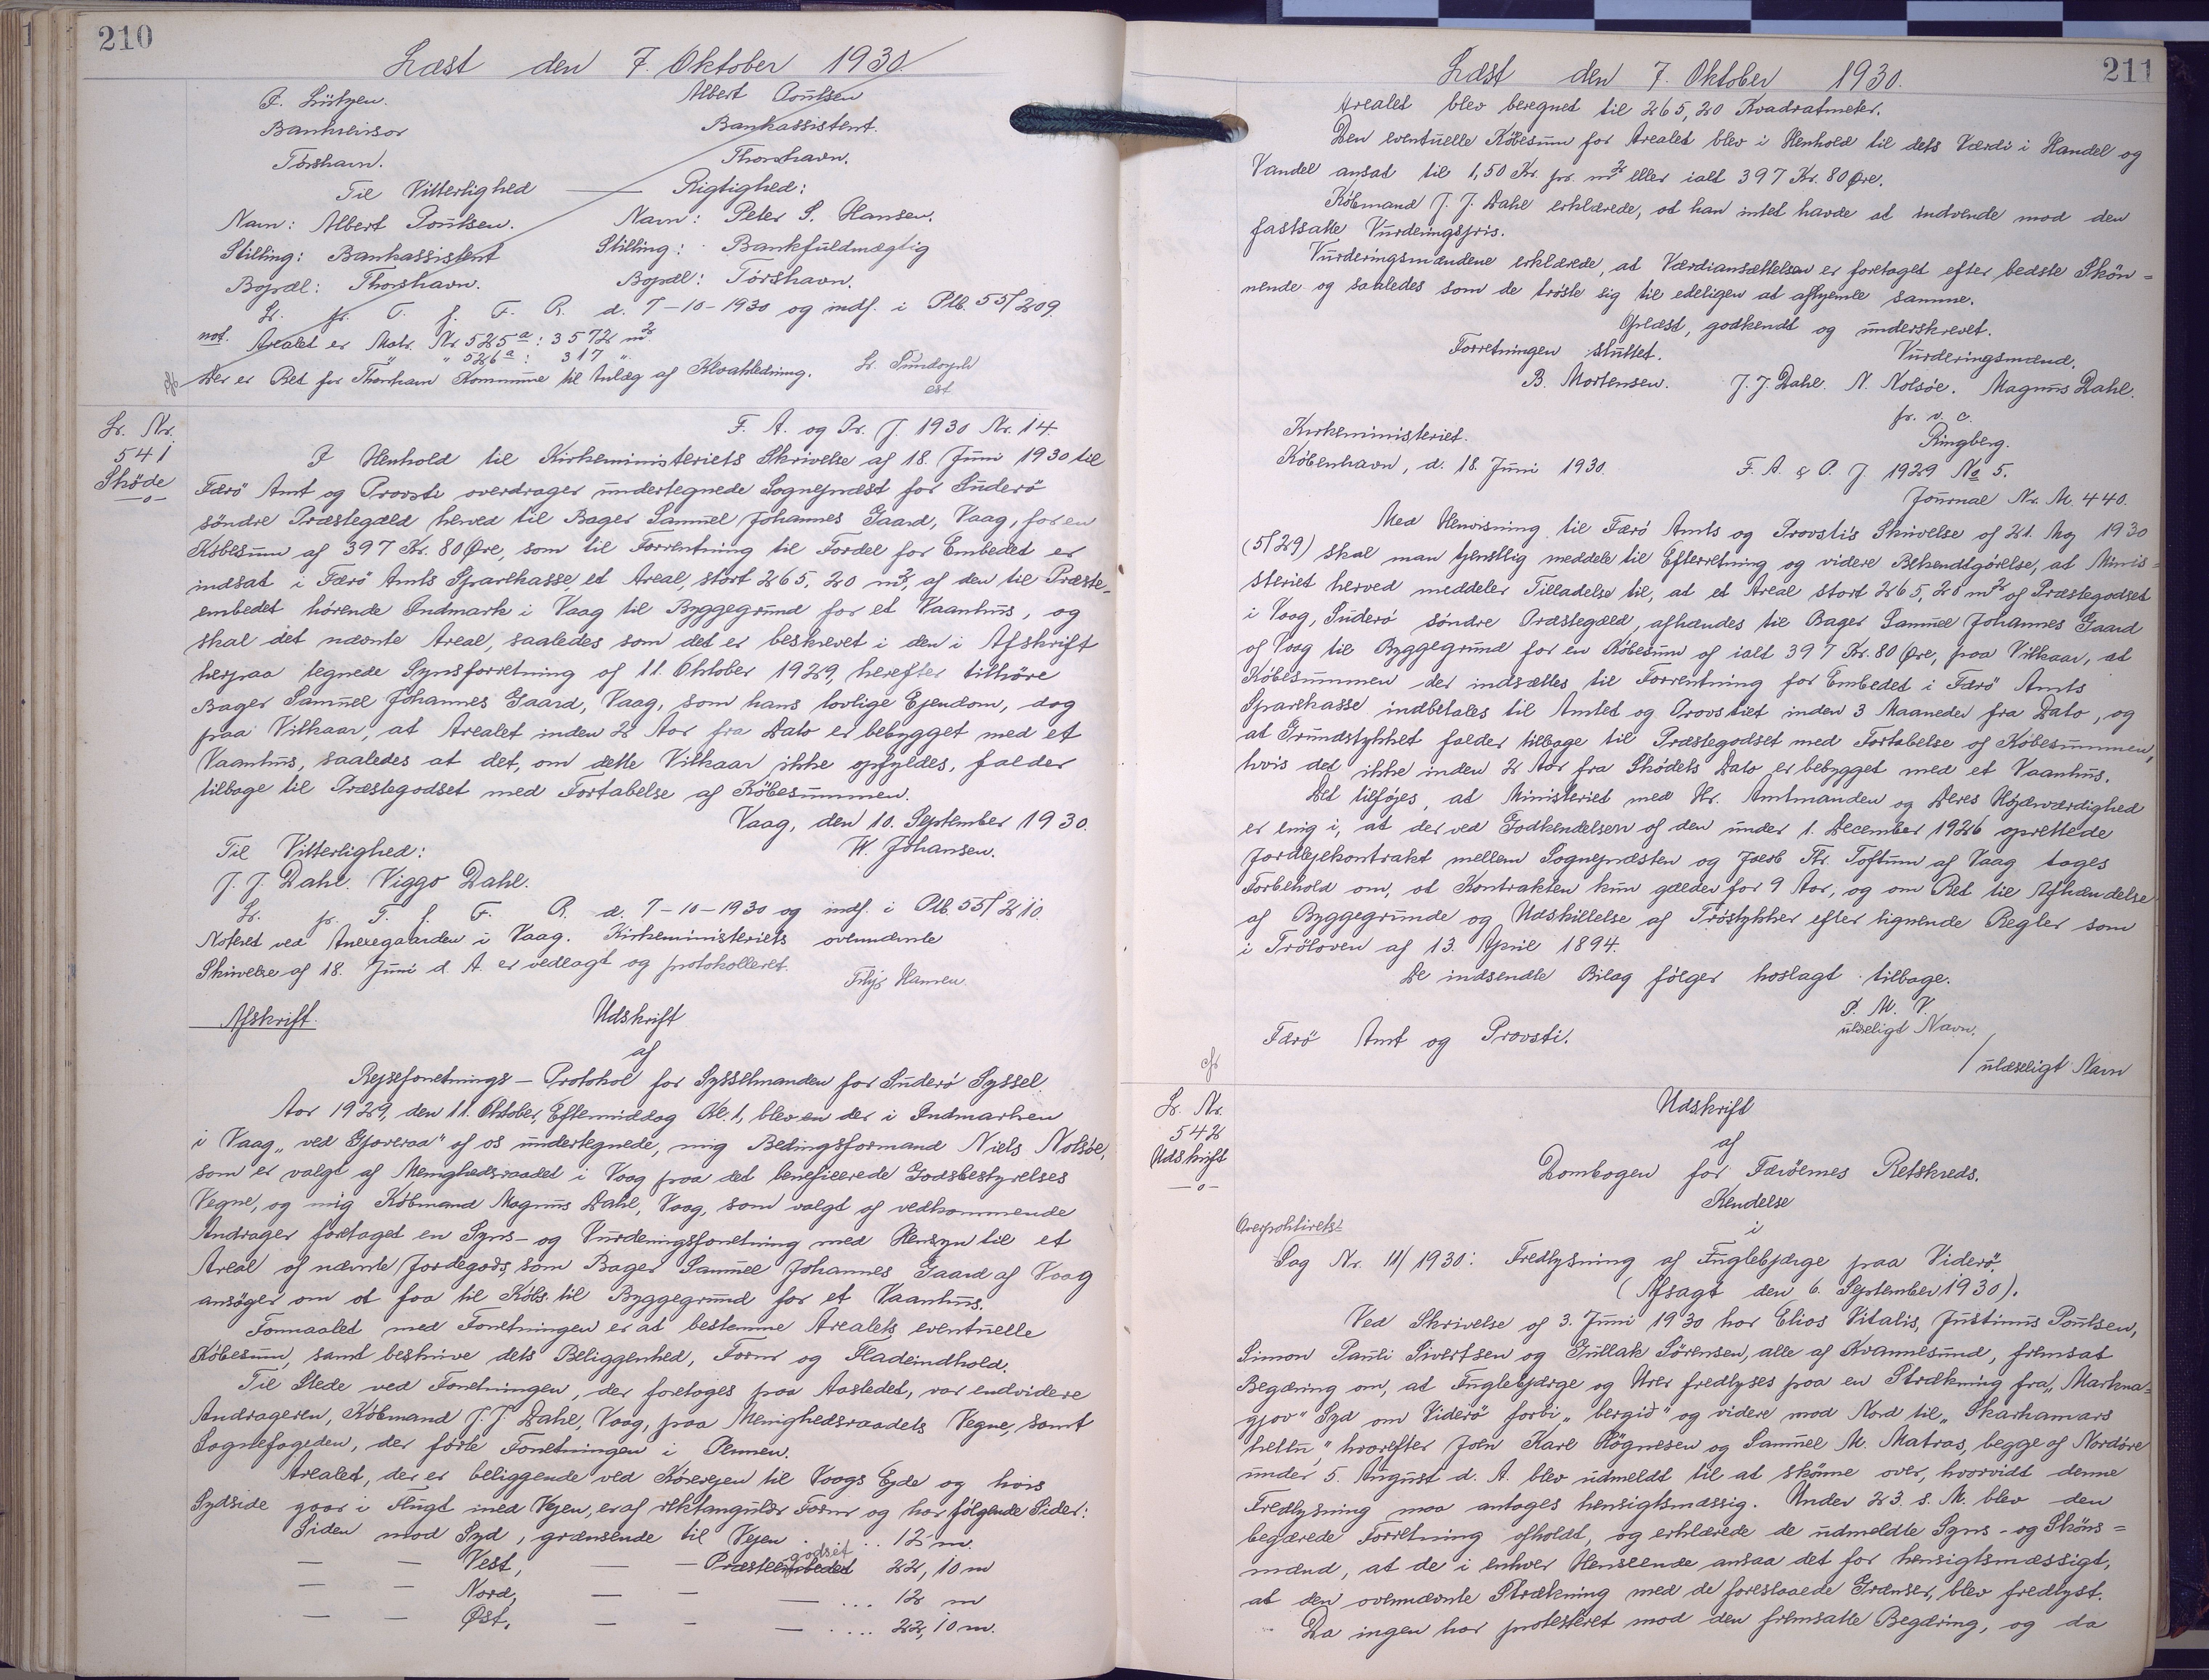 210
Læst den 7. Oktober 1930.
P. Lützen. Albert Poulsen
Bankrevisor Bankassistent.
Tórshavn. Thorshavn.
Til Vitterlighed — Rigtighed:
Navn: Albert Poulsen. Navn: Peter S. Hansen.
Stilling: Bankassistent Stilling: Bankfuldmægtig
Bopæl: Thorshavn. Bopæl: Tórshavn.
Lr. pr. T. f. F. R. d. 7-10-1930 og indf. i Ptb. 55/209.
not. Arealet er Matr. Nr 525a: 3572 m2
" " 526a: 317 "
Der er Ret for Thorshavn Kommune til Anlæg af Kloakledning.
Lr. Nr.
541
Skøde
—o—
F. A. og Pr. J. 1930 Nr. 14.
I Henhold til Kirkeministeriets Skrivelse af 18. Juni 1930 til
Færö Amt og Provsti overdrager undertegnede Sognepræst for Suderö
söndre Præstegæld herved til Bager Samuel Johannes Gaard, Vaag, for en
Købesum af 397 Kr. 80 Øre, som til Forrentning til Fordel for Embedet er
indsat i Færö Amts Sparekasse, et Areal, stort 265,20 m2, af den til Præste-
embedet hørende Indmark i Vaag til Byggegrund for et Vaanhus, og
skal det nævnte Areal, saaledes som det er beskrevet i den i Afskrift
herpaa tegnede Synsforretning af 11. Oktober 1929, herefter tilhöre
Bager Samuel Johannes Gaard, Vaag, som hans lovlige Ejendom, dog
paa Vilkaar, at Arealet inden 2 Aar fra Dato er bebygget med et
Vaanhus, saaledes at det, om dette Vilkaar ikke opfyldes, falder
tilbage til Præstegodset med Fortabelse af Købesummen.
Vaag, den 10. September 1930.
Til Vitterlighed: W. Johansen.
J. J. Dahl. Viggo Dahl.
Lr. pr. T. f. F. R. d. 7-10-1930 og indf. i Ptb. 55/210.
Noteret ved Anexegaarden i Vaag. Kirkeministeriets ovennævnte
Skrivelse af 18. Juni d. A. er vedlagt og protokolleret.
Afskrift. Udskrift
af
Rejseforretnings-Protokol for Sysselmanden for Suderö Syssel.
Aar 1929, den 11. Oktober, Eftermiddag Kl. 1, blev en der i Indmarken
i Vaag "ved Gjoveraa" af os undertegnede, mig Bedingsformand Niels Nolsöe,
som er valgt af Menighedsraadet i Vaag paa det beneficerede Godsbestyrelses
Vegne, og mig Købmand Magnus Dahl, Vaag, som valgt af vedkommende
Andrager foretaget en Syns- og Vurderingsforretning med Hensyn til et
Areal af nævnte Jordegods, som Bager Samuel Johannes Gaard af Vaag
ansöger om at faa til Købs til Byggegrund for et Vaanhus.
Formaalet med Forretningen er at bestemme Arealets eventuelle
Købesum, samt beskrive dets Beliggenhed, Form og Fladeindhold.
Til Stede ved Forretningen, der foretoges paa Aastedet, var endvidere
Andrageren, Købmand J. J. Dahl, Vaag, paa Menighedsraadets Vegne, samt
Sognefogeden, der førte Forretningen i Pennen.
Arealet, der er beliggende ved Køreвejen til Vaags Ejde og hvis
Sydside gaar i Flugt med Vejen, er af rektangulær Form og har følgende Sider:
Siden mod Syd, grænsende til Vejen . . . . 12 m.
— — Vest, — — Præsteembedet godset 22,10 m
— — Nord, — — — ... 12 m
— — Øst, — — — .... 22,10 m.
211
Læst den 7. Oktober 1930.
Arealet blev beregnet til 265,20 Kvadratmeter.
Den eventuelle Købesum for Arealet blev i Henhold til dets Værdi i Handel og
Vandel ansat til 1,50 Kr. pr. m2 eller ialt 397 Kr. 80 Øre.
Købmand J. J. Dahl erklærede, at han intet havde at indvende mod den
fastsatte Vurderingspris.
Vurderingsmændene erklærede, at Værdiansættelsen er foretaget efter bedste Skön-
nende og saaledes som de trøste sig til edeligen at afhjemle samme.
Oplæst, godkendt og underskrevet.
Forretningen sluttet. Vurderingsmænd.
B. Mortensen. J. J. Dahl. N. Nolsöe. Magnus Dahl.
pr. v. c.
Ringberg.
Kirkeministeriet.
København, d. 18. Juni 1930. F. A. & P. J. 1929 No 5.
Journal Nr. M. 440.
Med Henvisning til Færö Amts og Provstis Skrivelse af 21. Maj 1930
(5/29) skal man tjenstlig meddele til Efterretning og videre Bekendtgörelse, at Minis-
steriet herved meddeler Tilladelse til, at et Areal stort 265,20 m2 af Præstegodset
i Vaag, Suderö söndre Præstegæld, afhændes til Bager Samuel Johannes Gaard
af Vaag til Byggegrund for en Købesum af ialt 397 Kr. 80 Øre, paa Vilkaar, at
Købesummen der indsættes til Forrentning for Embedet i Færö Amts
Sparekasse indbetales til Amtet og Provstiet inden 3 Maaneder fra Dato, og
at Grundstykket falder tilbage til Præstegodset med Fortabelse af Købesummen,
hvis det ikke inden 2 Aar fra Skødets Dato er bebygget med et Vaanhus.
Det tilføjes, at Ministeriet med Hr. Amtmanden og Deres Højærværdighed
er enig i, at der ved Godkendelsen af den under 1. December 1926 oprettede
Jordlejekontrakt mellem Sognepræsten og Jacob Thr. Toftum af Vaag tages
Forbehold om, at Kontrakten kun gælder for 9 Aar, og om Ret til Afhændelse
af Byggegrunde og Udskillelse af Tröstykker efter lignende Regler som
i Tröloven af 13. April 1894.
De indsendte Bilag følger hoslagt tilbage.
P. M. V.
ulæseligt Navn.
Færö Amt og Provsti.
/ ulæseligt Navn
Lr. Nr.
542
Udskrift
—o—
Udskrift
af
Dombogen for Færöernes Retskreds.
Kendelse
i
Overpolitirets-
Sag Nr. 11/1930: Fredlysning af Fuglebjærge paa Viderö.
(Afsagt den 6. September 1930).
Ved Skrivelse af 3. Juni 1930 har Elias Vitalis, Justinus Poulsen,
Simon Pauli Sivertsen og Gullak Sörensen, alle af Kvannesund, fremsat
Begæring om, at Fuglebjærge og Urer fredlyses paa en Strækning fra "Markna-
gjov" Syd om Viderö forbi "bergið" og videre mod Nord til "Skarhamars
hellu," hvorefter John Karl Högnesen og Samuel M. Matras, begge af Nordöre
under 5. August d. A. blev udmeldt til at skönne over, hvorvidt denne
Fredlysning maa antages hensigtsmæssig. Under 23. s. M. blev den
begærede Forretning afholdt, og erklærede de udmeldte Syns- og Sköns-
mænd, at de i enhver Henseende ansaa det for hensigtsmæssigt,
at den ovennævnte Strækning med de foreslaaede Grænser, blev fredlyst.
Da ingen har protesteret mod den fremsatte Begæring, og da